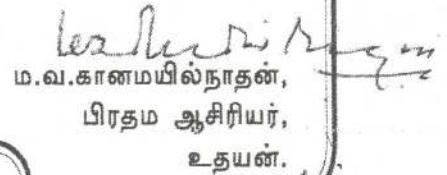 ம.வ.கானமயில்நாதன்,
பிரதம ஆசிரியர்,
உதயன்.